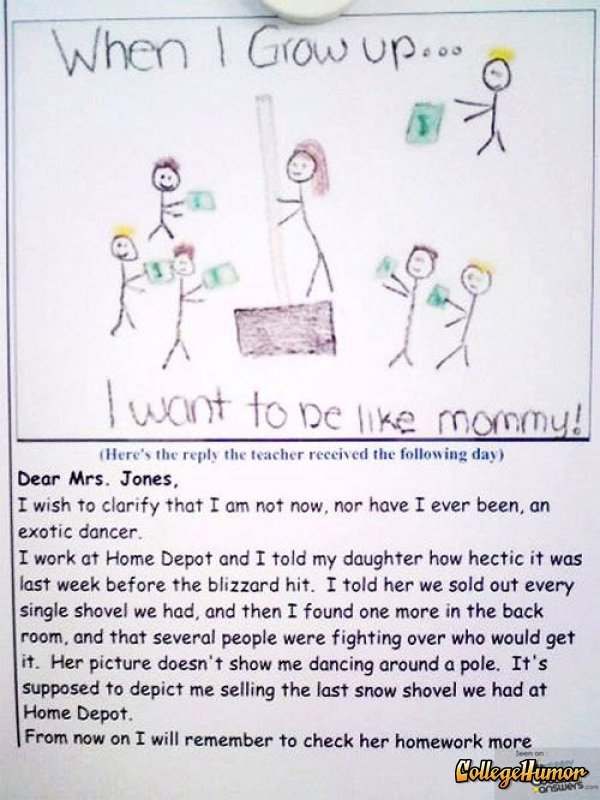 When I Grow up...
I want to be like mommy!
(Here's the reply the teacher received the following day)
Dear Mrs. Jones,
I wish to clarify that I am not now, nor have I ever been, an
exotic dancer.
I work at Home Depot and I told my daughter how hectic it was
last week before the blizzard hit. I told her we sold out every
single shovel we had, and then I found one more in the back
room, and that several people were fighting over who would get
it. Her picture doesn't show me dancing around a pole. It's
supposed to depict me selling the last snow shovel we had at
Home Depot.
From now on I will remember to check her homework more
Seen on:
CollegeHumor
answers.com